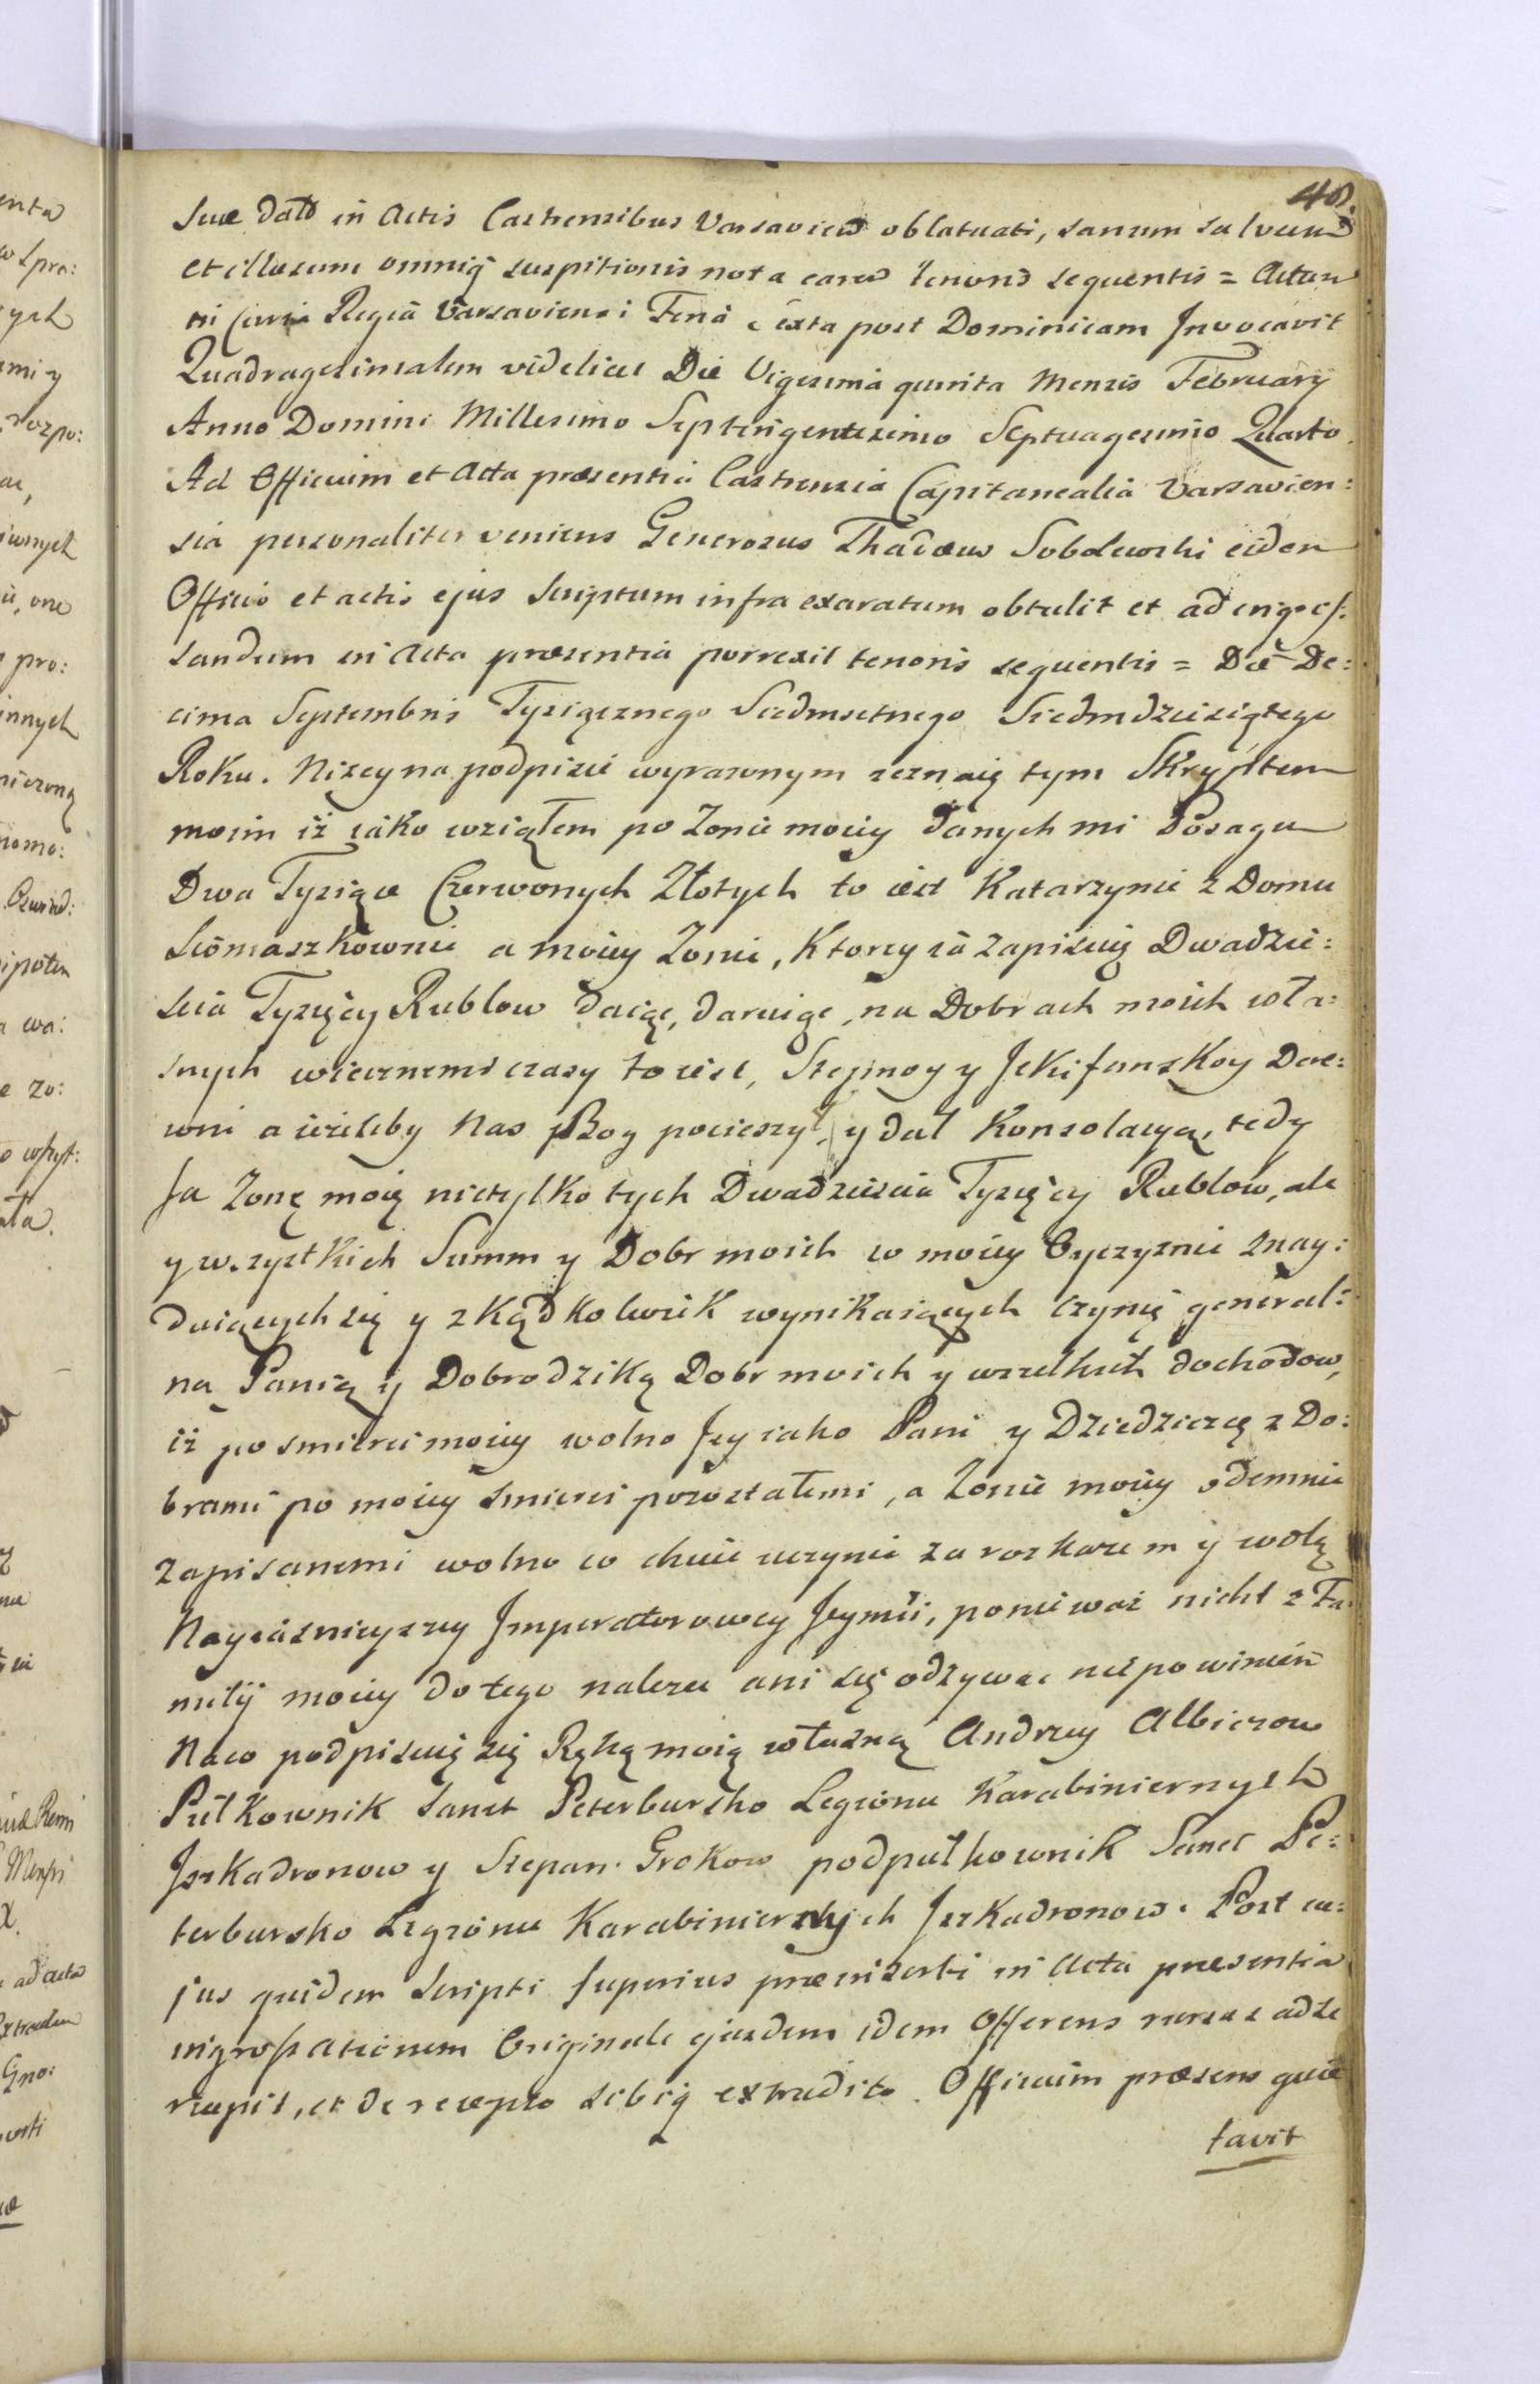 48.
suæ dato in Actis Castrensibus Varsavien oblatuati, sanum salvum
et illæsum omniq suspitionis nota caren tenoris sequentis = Actum
in Curia Regia Varsaviensi Feria sexta post Dominicam Invocavit
Quadragesimalem videlicet Die Vigesima quinta Mensis February
Anno Domini Millesimo Septingentesimo Septuagesimo Quarto.
Ad Officium et Acta præsentia Castrensia Capitanealia Varsavien:
sia personaliter veniens Generosus Thadæus Sobolewski eidem
Officio et actis ejus Scriptum infra exaratum obtulit et ad ingros:
sandum in Acta præsentia porrexit tenoris sequentis = Die De:
cima Septembris Tysiącznego Siedmsetnego Siedmdziesiątego
Roku. Nizey na podpisie wyrazonym zeznaię tym Skryptem
moim iż iako wziąłem po Zonie moiey danych mi Posagu
Dwa Tysiące Czerwonych Złotych to iest Katarzynie z Domu
Siomaszkownie a moiey Zonie, Ktorey ia zapisuię Dwadzie:
scia Tysięcy Rublow daiąc, daruiąc, na Dobrach moich wła:
snych wiecznemi czasy to iest, Stepnoy y Jekifanskoy Dere:
wni a ieżeliby Nas P Bog pocieszył, y dał Konsolacyą, tedy
Ja Zonę moię nietylko tych Dwadziescia Tysięcy Rublow, ale
y wszystkich Summ y Dobr moich w moiey Oyczyznie znay:
duiących się y zkądkolwiek wynikaiących czynię general:
ną Panią y Dobrodziką Dobr moich y wszelkich dochodow,
iż po smierci moiey wolno Jey iako Pani y Dziedziczcę z Do:
brami po moiey smierci pozostałemi, a Zonie moiey odemnie
zapisanemi wolno co chcie uczynić za roskazem y wolą
Nayiasnieyszey Imperatorowey Jeymci, poniewaz nicht z Fa:
milij moiey do tego nalezec ani się odzywac nie powinien
Naco podpisuię się Ręką moią własną Andrzey Albiczow
Pułkownik Sanct Petersbursko Legionu Karabiniernych
Jszkadronow y Stepan Grokow podpułkownik Sanct Pe:
terbursko Legionu Karabiniernych Jszkadronow. Post cu:
jus quidem Scripti superius præinserti in Acta præsentia
ingrossationem Originale ejusdem idem Offerens rursus ad se
recepit, et de recepto sibiq extradito Officium præsens quie
tavit